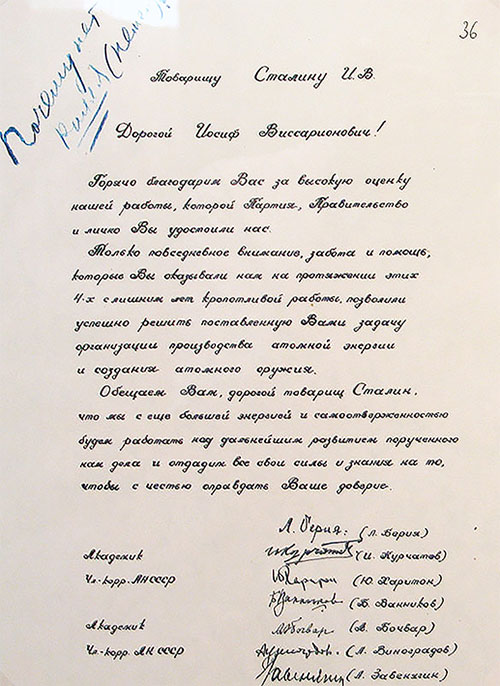 36
Почему нет
(немец
Товарищу Сталину И.В.
Дорогой Иосиф Виссарионович!
Горячо благодарим Вас за высокую оценку
нашей работы, которой Партия, Правительство
и лично Вы удостоили нас.
Только повседневное внимание, забота и помощь,
которые Вы оказывали нам на протяжении этих
4-х с лишним лет кропотливой работы, позволили
успешно решить поставленную Вами задачу
организации производства атомной энергии
и создания атомного оружия.
Обещаем Вам, дорогой товарищ Сталин,
что мы с еще большей энергией и самоотверженностью
будем работать над дальнейшим развитием порученного
нам дела и отдадим все свои силы и знания на то,
чтобы с честью оправдать Ваше доверие.
Л. Берия. (Л. Берия)
Академик И Курчатов (И. Курчатов)
Чл.-корр. АН СССР Ю Харитон (Ю. Харитон)
Б Ванников (Б. Ванников)
Академик А Бочвар (А. Бочвар)
Чл.-корр. АН СССР А Виноградов. (А. Виноградов)
Завенягин (А. Завенягин)